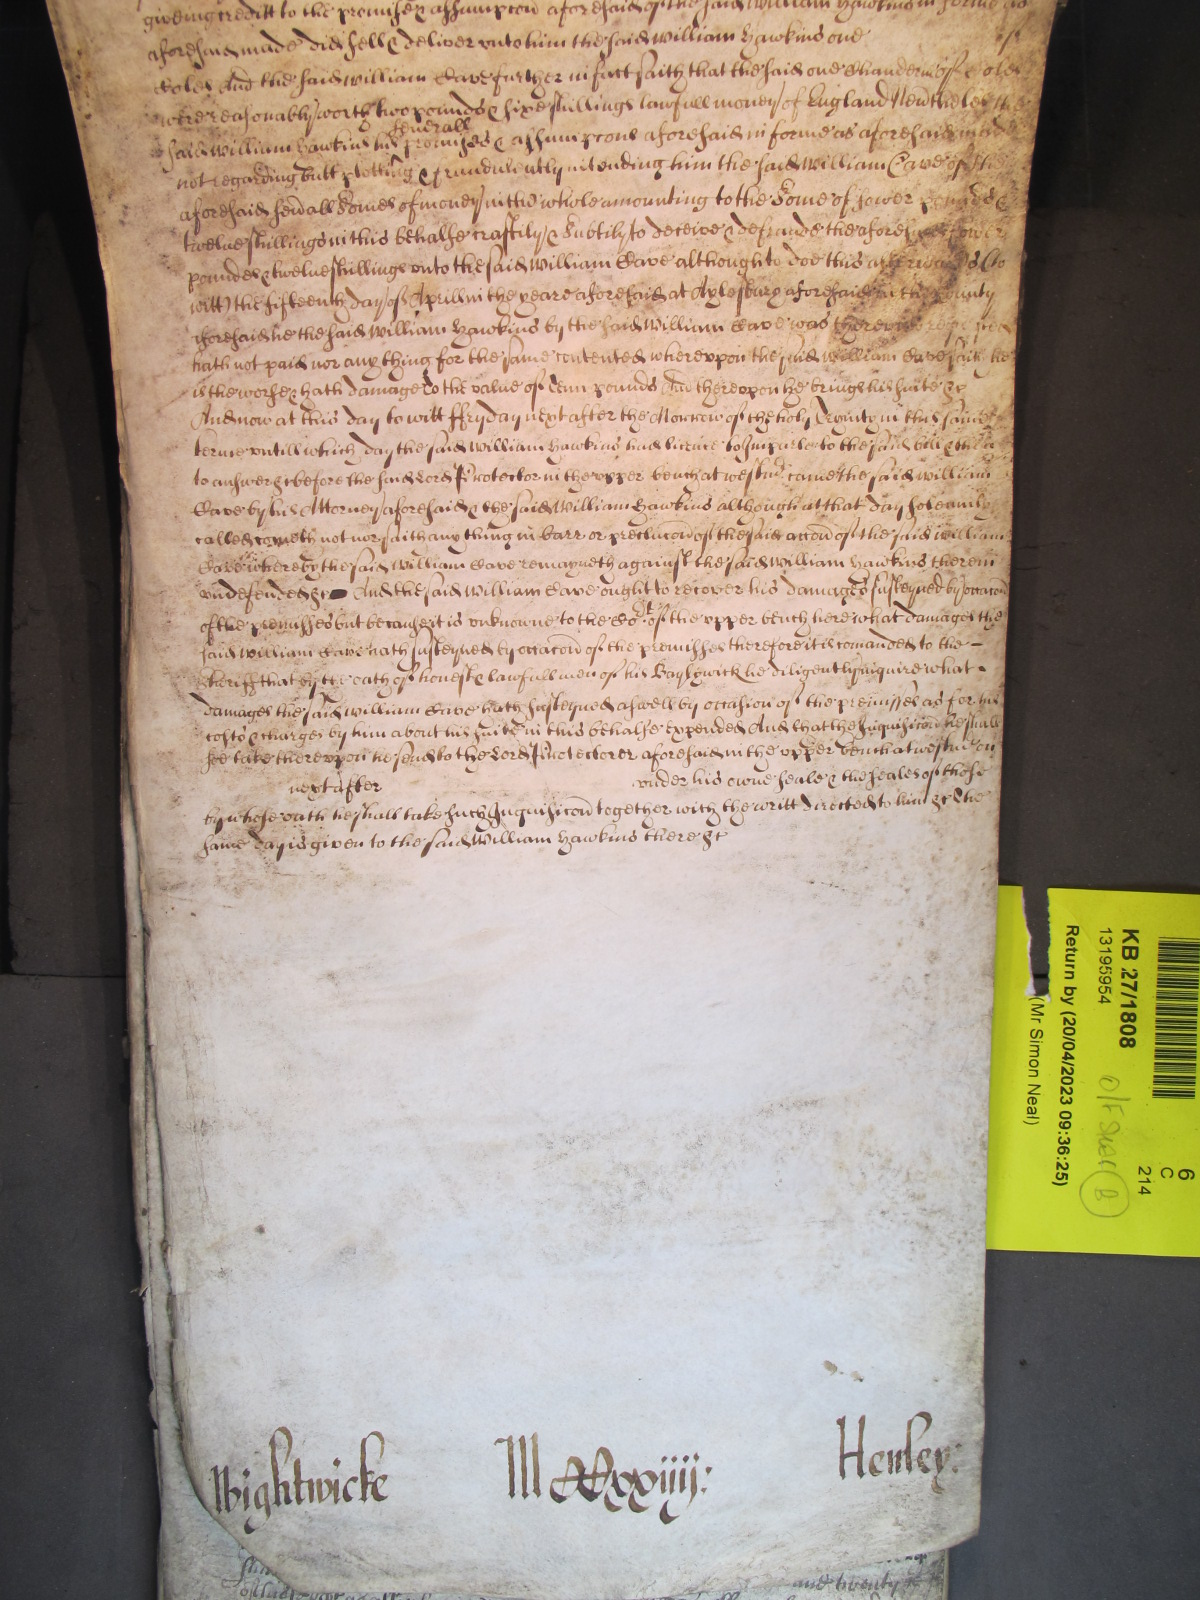 giveing creditt to the promise & assumpcon aforesaid of the said William Hawkins in forme as
aforesaid made did sell & deliver unto him the said William Hawkins one
Coles And the said William Cave further in fact saith that the said one Chaudern of Coles
were reasonably worth two pounds & sixe shillings lawfull money of England Neverthelesse the
said William Hawkins his severall promises & assumpcons aforesaid in forme as aforesaid made
not regarding butt plotting & fraudulently intending him the said William Cave of the
aforesaid severall Somes of money in the whole amounting to the Some of fower pounds &
twelve shillings in this behalfe craftily & Subtily to deceive & defraude the aforesaid fower
pounds & twelve shillings unto the said William Cave although to doe this afterwards (to
witt) the fifteenth day of Aprill in the yeare aforesaid at Aylesbury aforesaid in the County
aforesaid he the said William Hawkins by the said William Cave was thereunto required
hath not paid nor any thing for the same contented whereupon the said William Cave saith he
is the worse & hath damage to the value of Tenn pounds And thereupon he brings his suite &c
And now at this day to witt ffryday next after the Morrow of the holy Trinity in this same
terme untill which day the said William Hawkins had licence to Imparle to the said bill & then
to answer &c before the said Lord Protector in the upper bench at Westmr came the said William
Cave by his Attorney aforesaid & the said William Hawkins although at that day solemnly
called cometh not nor saith any thing in barr or preclucon of the said accon of the said William
Cave whereby the said William Cave remayneth against the said William Hawkins therein
undefended &c And the said William Cave ought to recover his damages susteyned by occacon
of the premisses but because it is unknowne to the Cort of the upper bench here what damages the
said William Cave hath susteyned by occacon of the premisses therefore it is comanded to the
Sheriff that by the oath of honest & lawfull men of his Baylywick he diligently inquire what
damages the said William Cave hath susteyned aswell by occasion of the premisses as for his
costs & charges by him about his suite in this behalfe expended And that the Inquisicon he shall
see take thereupon he send to the Lord Protector aforesaid in the upper bench at Westmr on
next after under his owne seale & the seales of those
by whose oath he shall take such Inquisicon together with the writt directed to him &c The
same day is given to the said William Hawkins there &c
Wightwicke
M CCxxiiij:
Henley:
and twenty
KB 27/1808
13195954
Return by (20/04/2023 09:36:25)
(Mr Simon Neal)
6
C
214
B